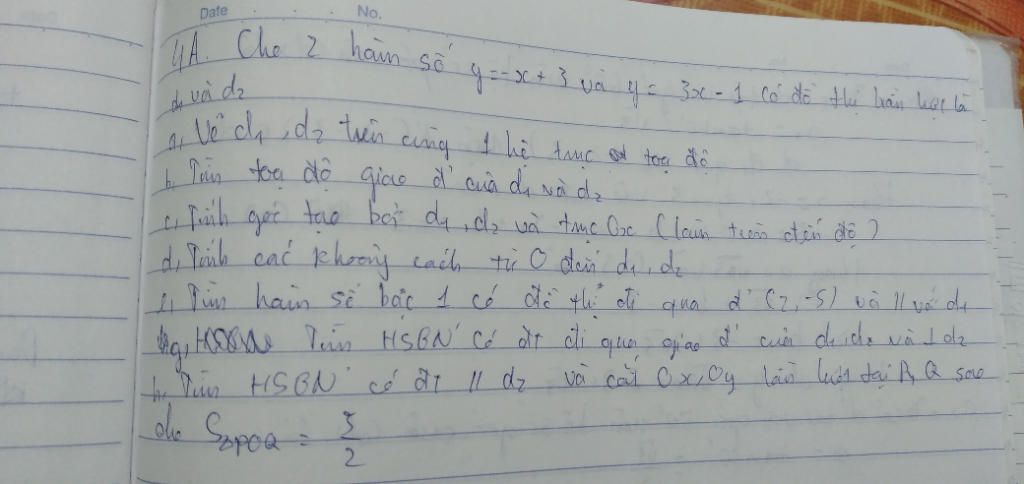 Date No.
4A. Cho 2 hàm số y=-x+3 và y= 3x-1 có đồ thị lần lượt là
d₁ và d₂
a, Vẽ d₁, d₂ trên cùng 1 hệ trục toạ độ
b, Tìm toạ độ giao đ' của d₁ và d₂
c, Tính góc tạo bởi d₁, d₂ và trục Ox (làm tròn đến độ)
d, Tính các khoảng cách từ O đến d₁, d₂
e, Tìm hàm số bậc 1 có đồ thị đi qua đ' (2, -5) và // với d₁
g, Tìm HSBN có ĐT đi qua giao đ' của d₁, d₂ và ⊥ d₂
h, Tìm HSBN có ĐT // d₂ và cắt Ox, Oy lần lượt tại P, Q sao
cho S△POQ = 5/2